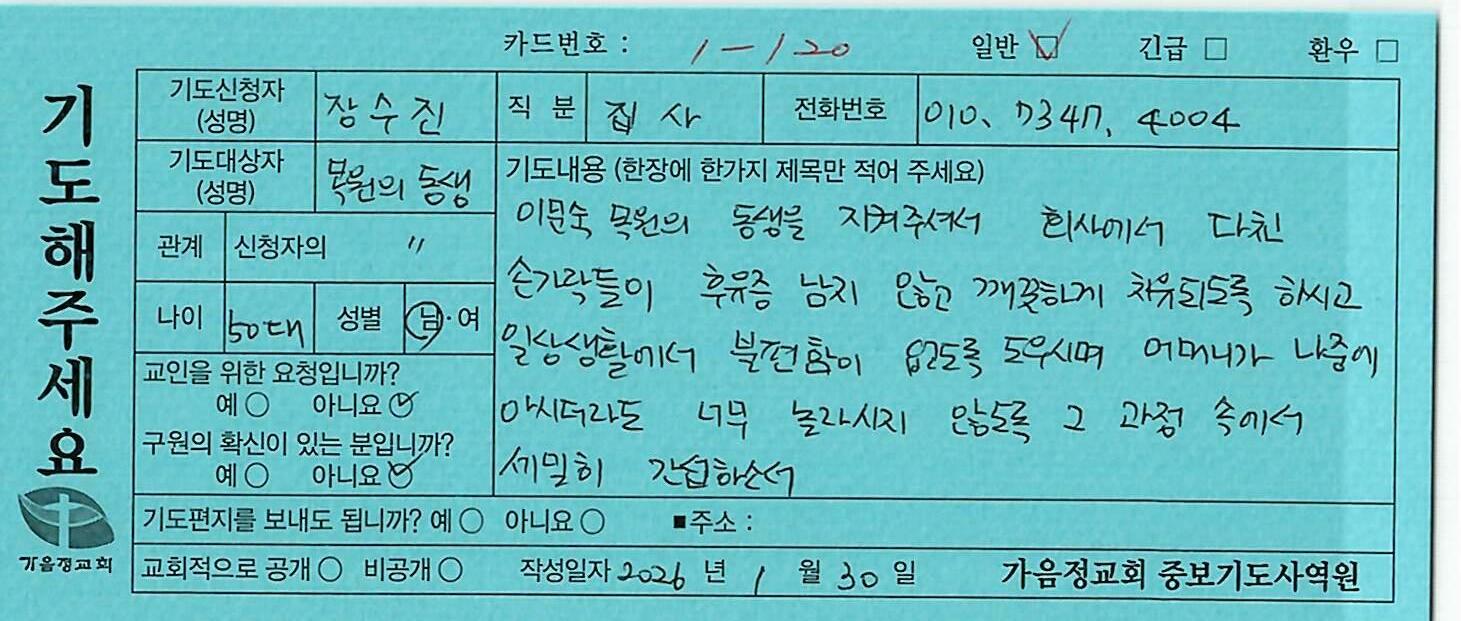 카드번호 : 1-120 일반 ☑ 긴급 □ 환우 □
기도해주세요
가음정교회
기도신청자 (성명) 장수진 직 분 집사 전화번호 010. 7347. 4004
기도대상자 (성명) 목원의 동생
관계 신청자의 〃
나이 50대 성별 남·여
교인을 위한 요청입니까?
예○ 아니요○✓
구원의 확신이 있는 분입니까?
예○ 아니요○✓
기도내용 (한장에 한가지 제목만 적어 주세요)
이문숙 목원의 동생을 지켜주셔서 회사에서 다친
손가락들이 후유증 남지 않고 깨끗하게 치유되도록 하시고
일상생활에서 불편함이 없도록 도우시며 어머니가 나중에
아시더라도 너무 놀라시지 않도록 그 과정 속에서
세밀히 간섭하소서
기도편지를 보내도 됩니까? 예○ 아니요○ ■주소 :
교회적으로 공개○ 비공개○ 작성일자 2026 년 1 월 30 일 가음정교회 중보기도사역원